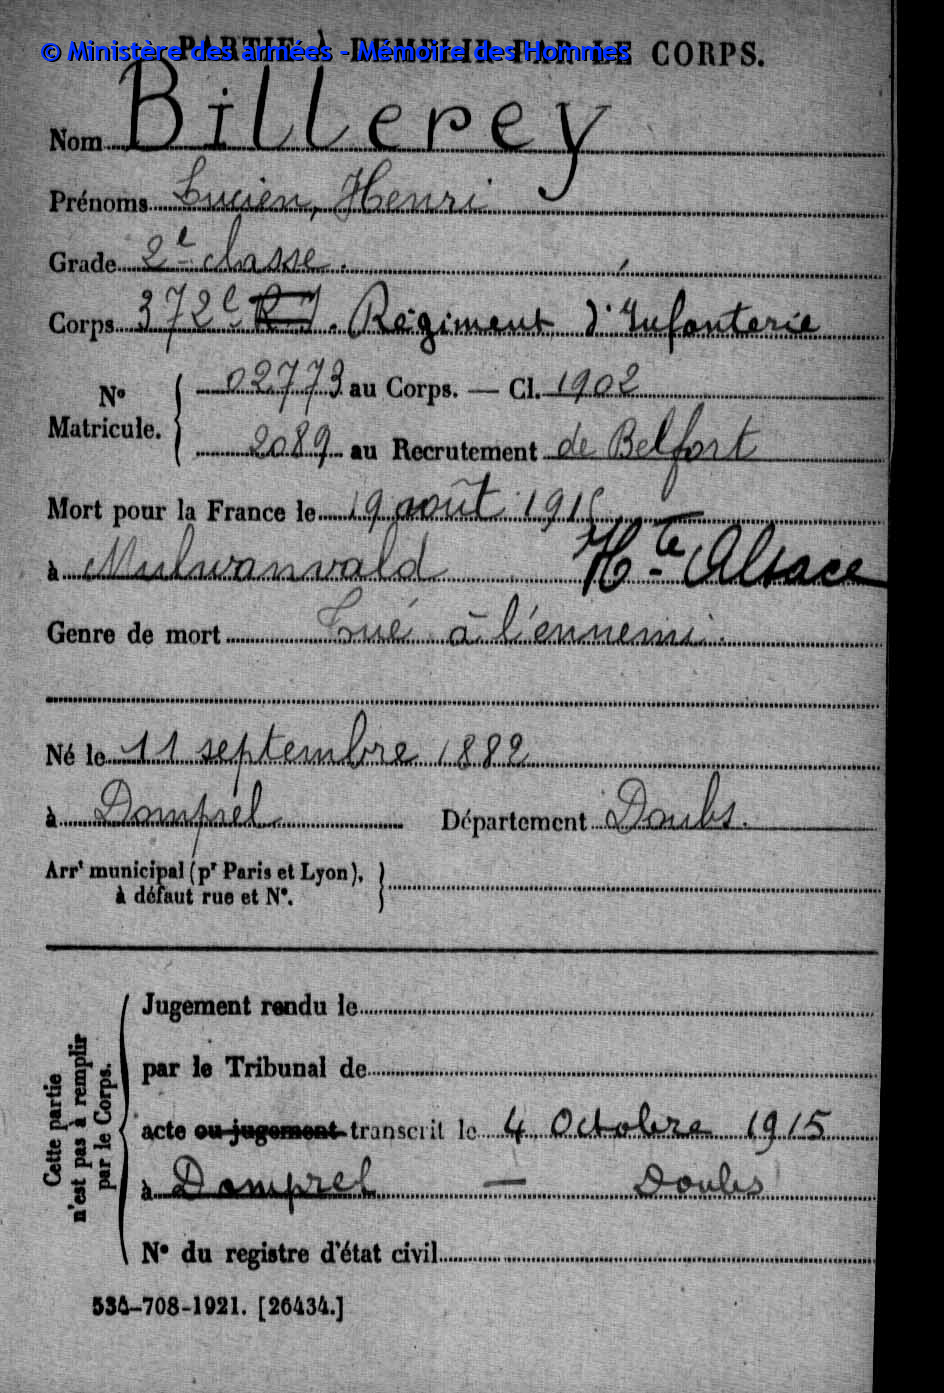 PARTIE À REMPLIR PAR LE CORPS.
© Ministère des armées - Mémoire des Hommes
Nom Billerey
Prénoms Lucien, Henri
Grade 2e classe.
Corps 372e R I. Régiment d'Infanterie
No Matricule. { 02773 au Corps. — Cl. 1902
2089 au Recrutement de Belfort
Mort pour la France le 19 août 1915
à Mulwanvald Hte Alsace
Genre de mort Tué à l'ennemi.
Né le 11 septembre 1882
à Domprel Département Doubs.
Arrt municipal (pr Paris et Lyon),
à défaut rue et No.
Cette partie n'est pas à remplir par le Corps.
Jugement rendu le
par le Tribunal de
acte ou jugement transcrit le 4 Octobre 1915
à Domprel — Doubs
No du registre d'état civil
534-708-1921. [26434.]